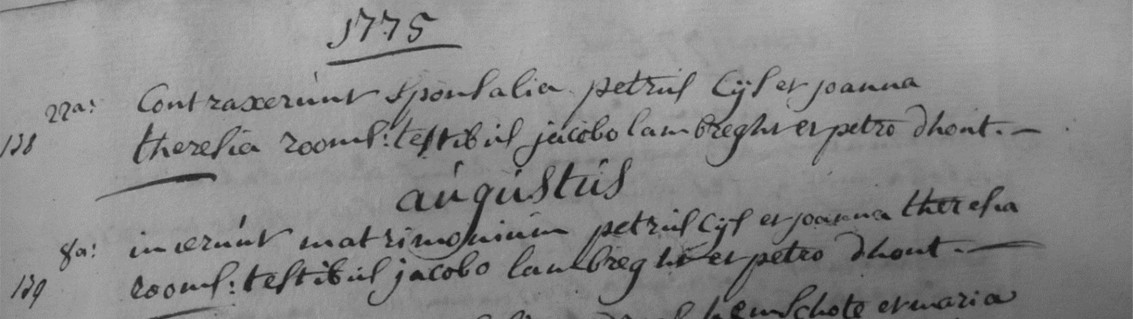 1775
22a: Contraxerunt sponsalia petrus Cijs et joanna
138 theresia rooms: testibus jacobo lambreght et petro dhont.—
augustus
8a: inierunt matrimonium petrus Cijs et joanna theresia
139 rooms: testibus jacobo lambreght et petro dhont.—
schote et maria